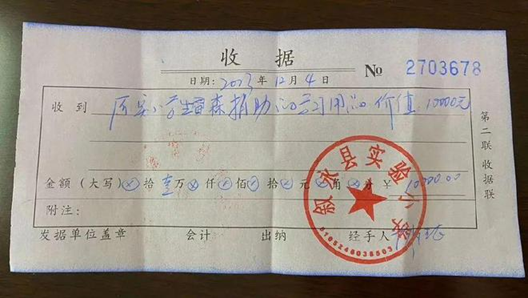 收 据
日期: 2023 年 12 月 4 日
No 2703678
收 到 捐助 学习用品 价值 10000元
金额(大写) ⊗ 拾 壹 万 ⊗ 仟 ⊗ 佰 ⊗ 拾 ⊗ 元 ⊗ 角 ⊗ 分 ¥ 10000.00
附注:
发据单位盖章 会计 出纳 经手人
第二联 收据联
叙永县实验小学